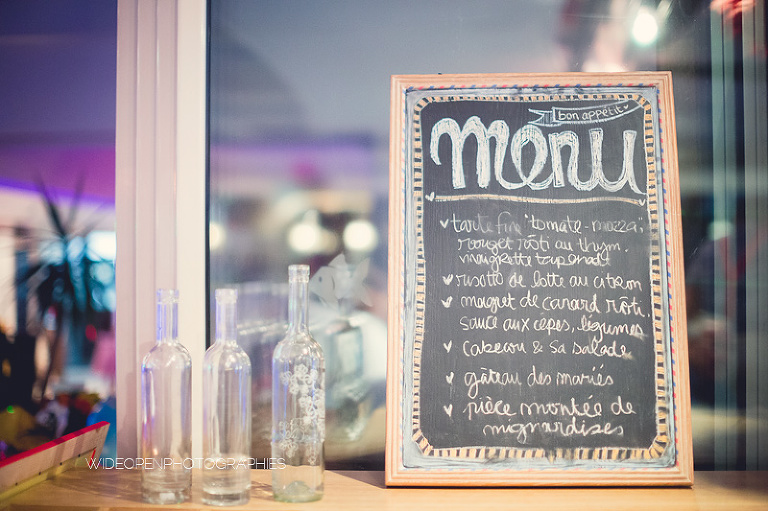 bon appétit
menu
tarte fine "tomate-mozza",
rouget rôti au thym,
risotto de lotte au citron
magret de canard rôti,
sauce aux cèpes, légumes
cabecou & sa salade
gâteau des mariés
pièce montée de
mignardises
WIDEOPENPHOTOGRAPHIES